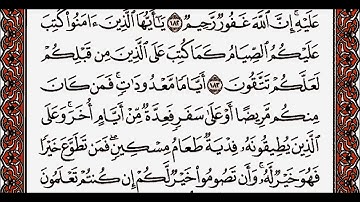 عَلَيْهِ إِنَّ ٱللَّهَ غَفُورٌ رَّحِيمٌ ١٨٢ يَـٰٓأَيُّهَا ٱلَّذِينَ ءَامَنُوا۟ كُتِبَ
عَلَيْكُمُ ٱلصِّيَامُ كَمَا كُتِبَ عَلَى ٱلَّذِينَ مِن قَبْلِكُمْ
لَعَلَّكُمْ تَتَّقُونَ ١٨٣ أَيَّامًا مَّعْدُودَٰتٍ ۚ فَمَن كَانَ
مِنكُم مَّرِيضًا أَوْ عَلَىٰ سَفَرٍ فَعِدَّةٌ مِّنْ أَيَّامٍ أُخَرَ ۚ وَعَلَى
ٱلَّذِينَ يُطِيقُونَهُۥ فِدْيَةٌ طَعَامُ مِسْكِينٍ ۖ فَمَن تَطَوَّعَ خَيْرًا
فَهُوَ خَيْرٌ لَّهُۥ ۚ وَأَن تَصُومُوا۟ خَيْرٌ لَّكُمْ ۖ إِن كُنتُمْ تَعْلَمُونَ